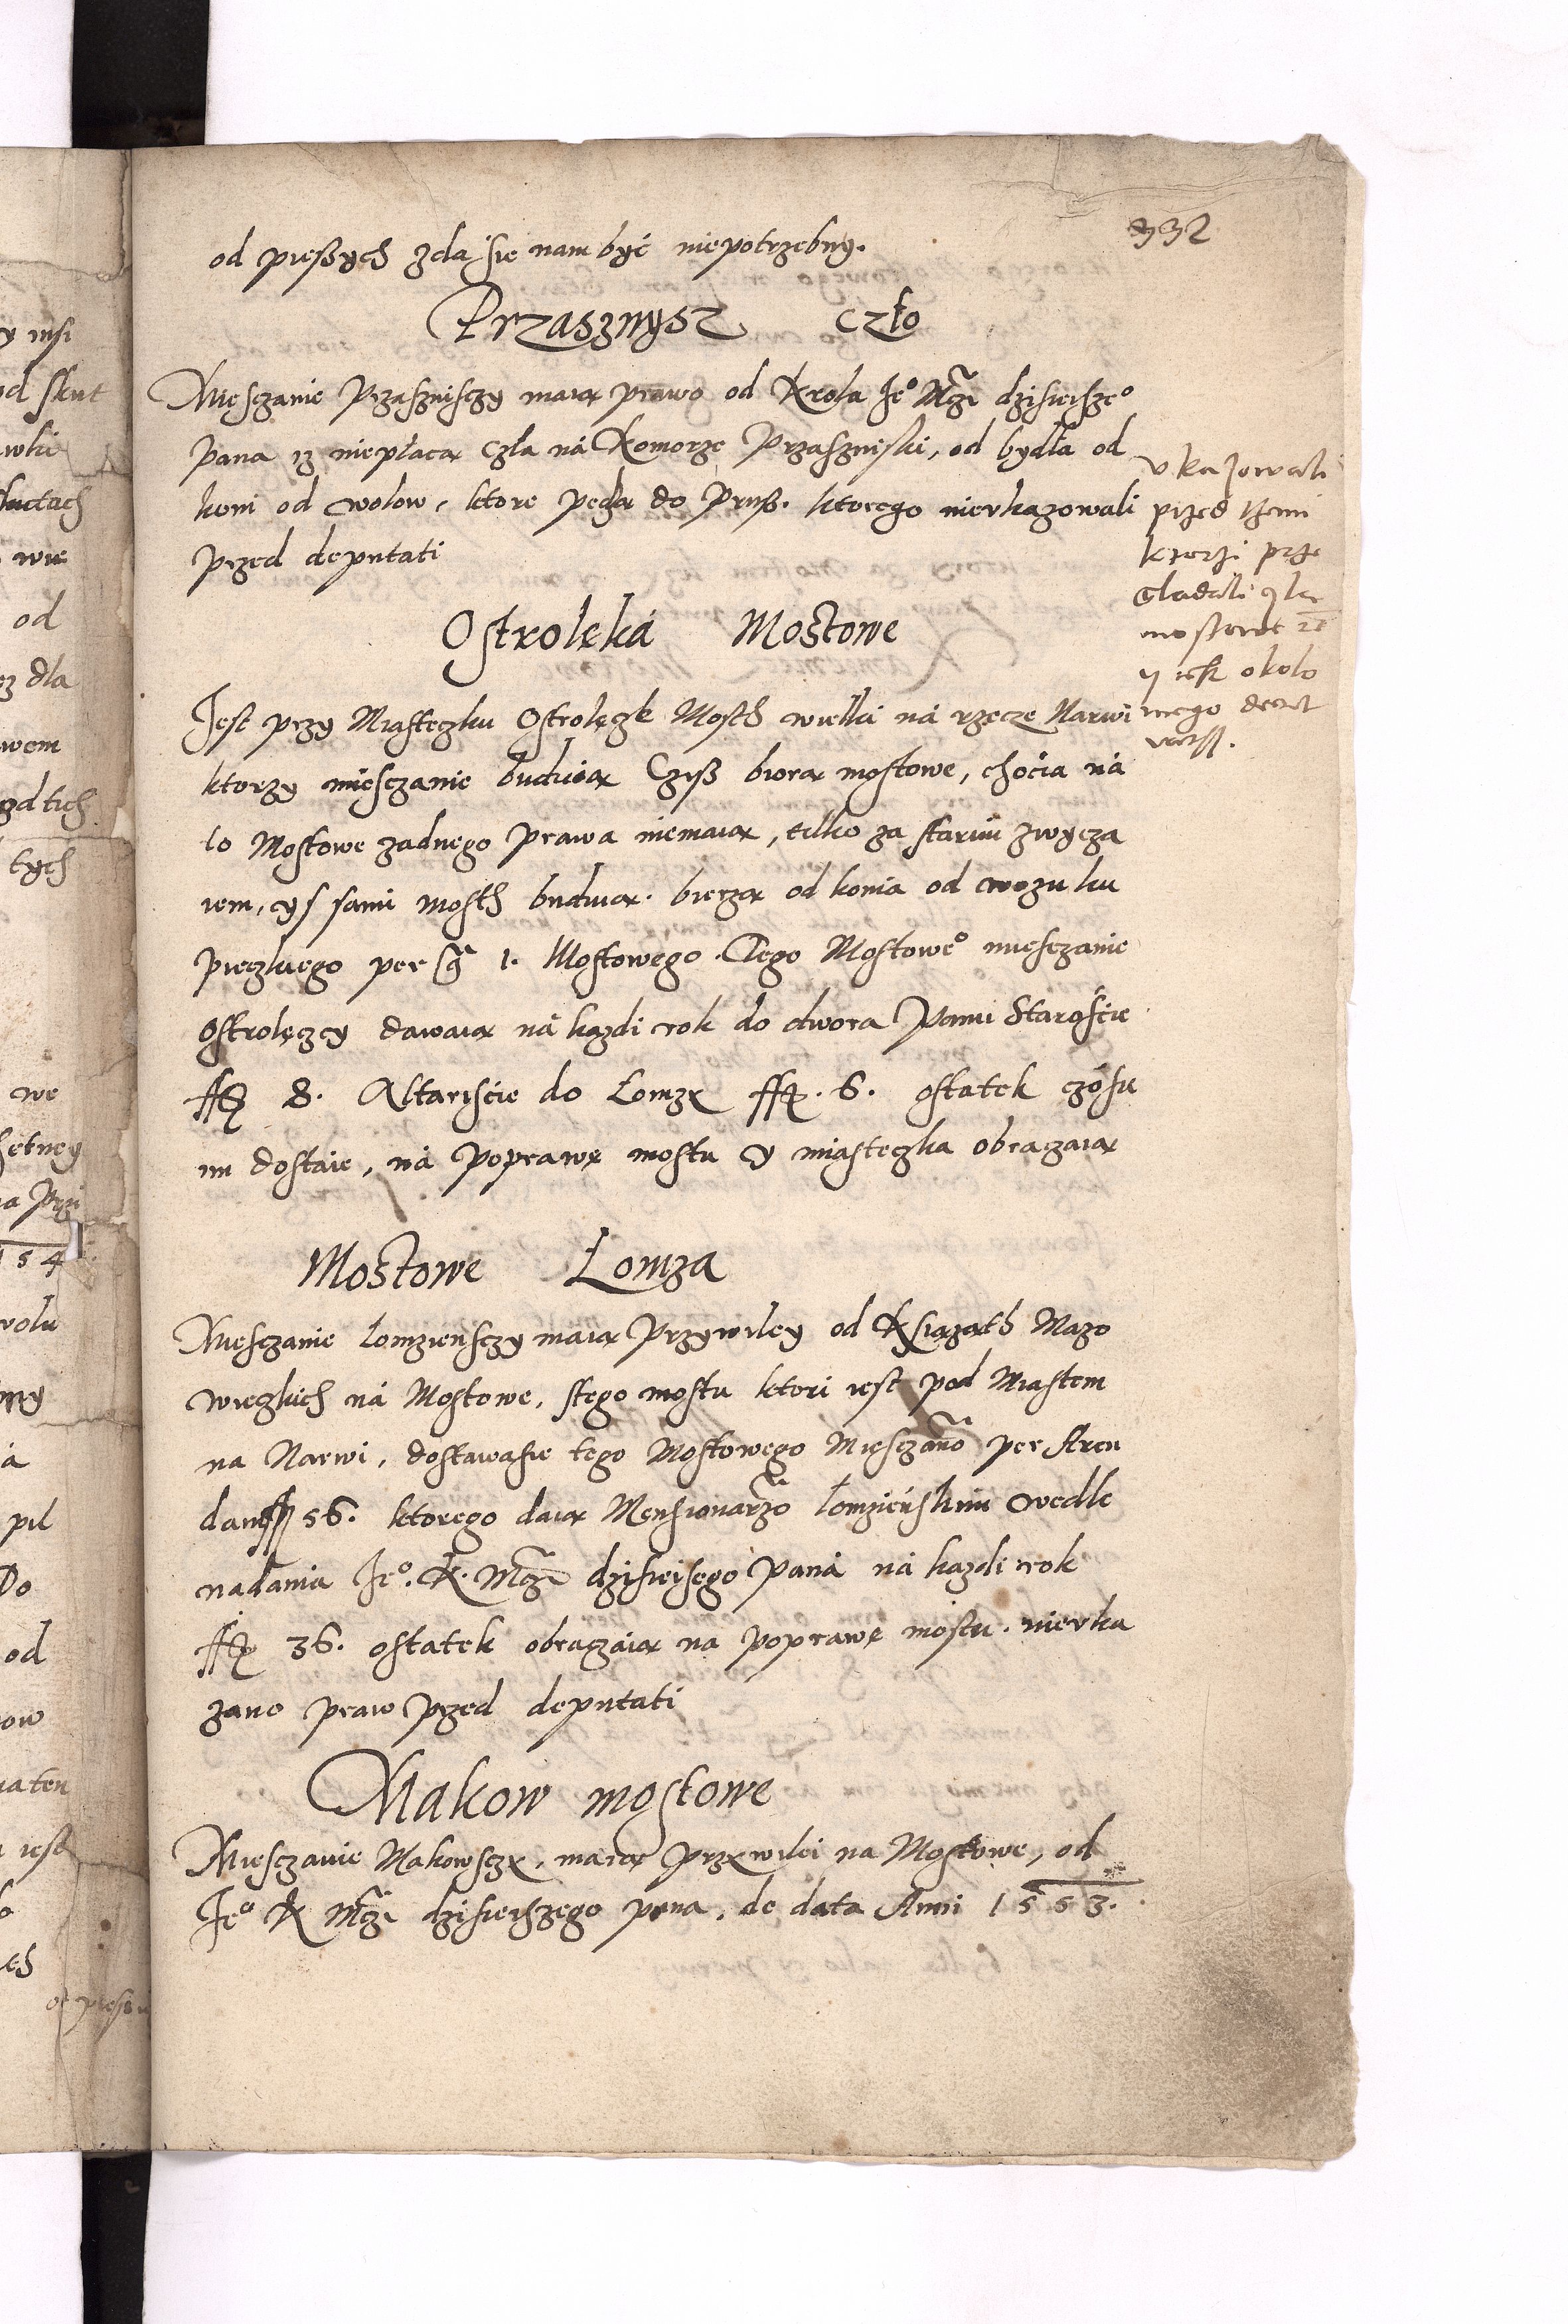 932
od pießych zda sie nam być niepotrzebny.
Przasznysz czło
Miesczanie Przaszniszy maią prawo od Krola Je° Mczi dzisieisze°
pana iz niepłacą czła ná Komorze Przaszniski, od bydła od
koni od wołow, ktore pędzą do Pruß. ktorego nievkazowali
przed deputati
vkazowali
przed themi
ktorzi prze
gladali
y iesth okolo
niego decret
Ostrolęká Mostowe
Jest przy Miasteczku Ostrolęczk Mosth wielki ná rzecze Narwi
ktorzy miesczanie buduią Czyß biorą mostowe, chocia ná
to Mostowe zadnego prawa niemaią, tilko za starim zwycza
iem, cys sami mosth buduią. bierzą od konia od wozu ku
pieczkiego per g 1. Mostowego. Tego Mostowe° miesczanie
Ostrolęczcy dawaią ná kazdi rok do dwora Panu Staroście
ff 8. Altariście do Łomzy ff. 6. ostatek czosie
im dostaie, ná poprawę mostu y miasteczka obraczaią
Mostowe Łomza
Miesczanie łomzienszy maią Przywiley od Ksiązath Mazo
wieczkich ná Mostowe, stego mostu ktori iest pod Miastem
na Narwi, dostawasie tego Mostowego Miesczano per Aren
dam ff 56. ktorego daią Mensionarzo łomzieńskim wedle
nadania Je°. K. Mczi dzisieisego paná ná kazdi rok
ff 36. ostatek obraczaią na poprawę mostu. nievka
zano praw przed deputati
Makow mostowe
Miesczanie Makowszy, maią przywilei na Mostowe, od
Je° K Mczi dzisieiszego pana, de data Anni 1553.